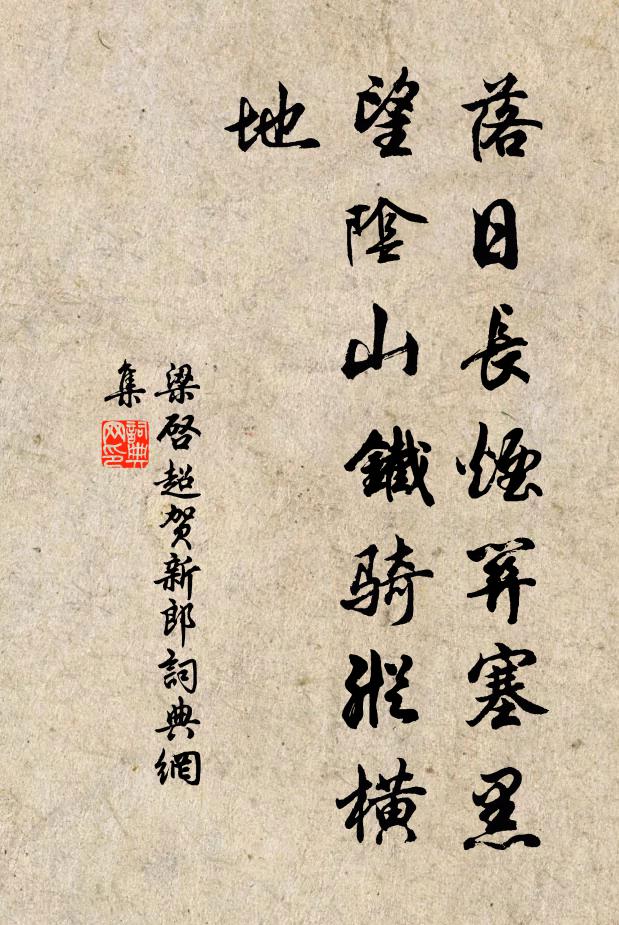 落日長煙關塞黑
望陰山鐵騎縱橫
地
梁啓超賀新郎詞典網
集
詞典网印